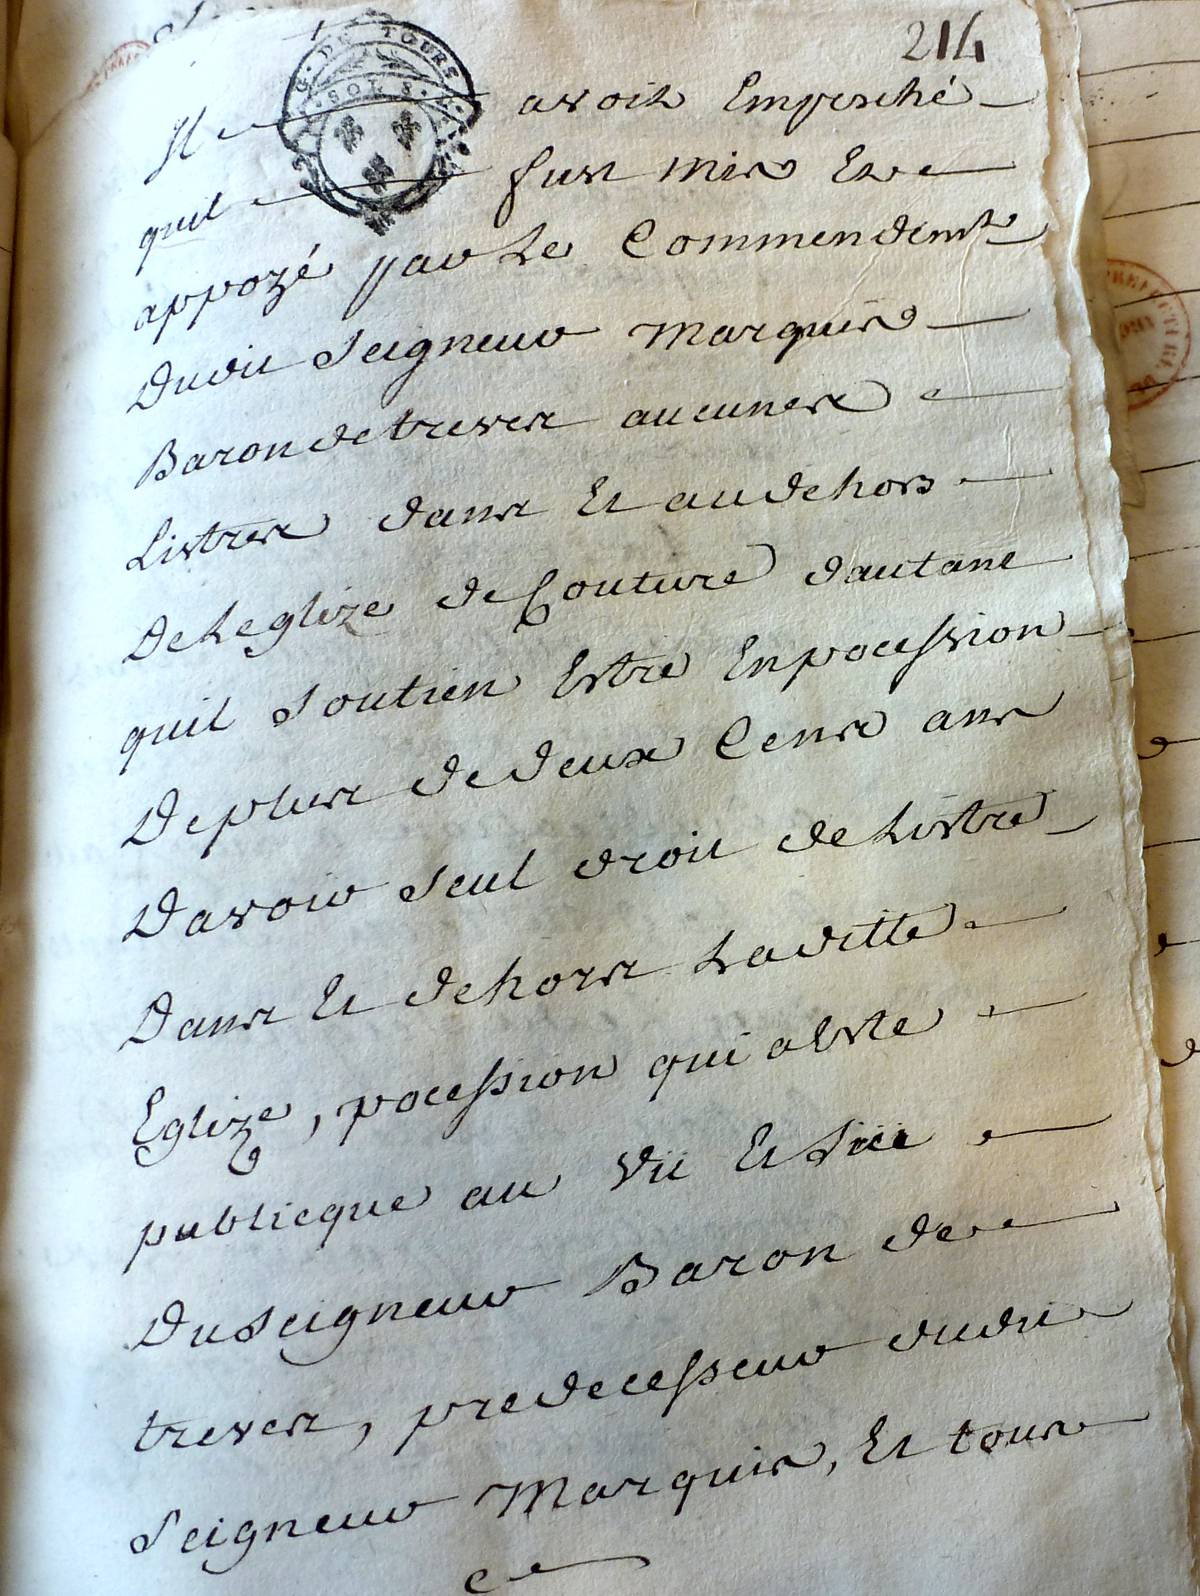 214
G. DE TOURS
SOLS
Il avoit Empesché
quil fust mis Et
appozé par Le Commendemt
Dudit Seigneur Marquis
Baron de treves aucunes
Listres dans Et au dehors
De Leglize de Couture dautant
quil soutien Estre En pocession
De plus de deux Cens ans
Davoir seul droit de Listre
Dans Et dehors Laditte
Eglize, pocession qui a Esté
publicque au vû Et sûe
Du Seigneur Baron de
treves, predecesseur dudit
Seigneur Marquis, Et tous